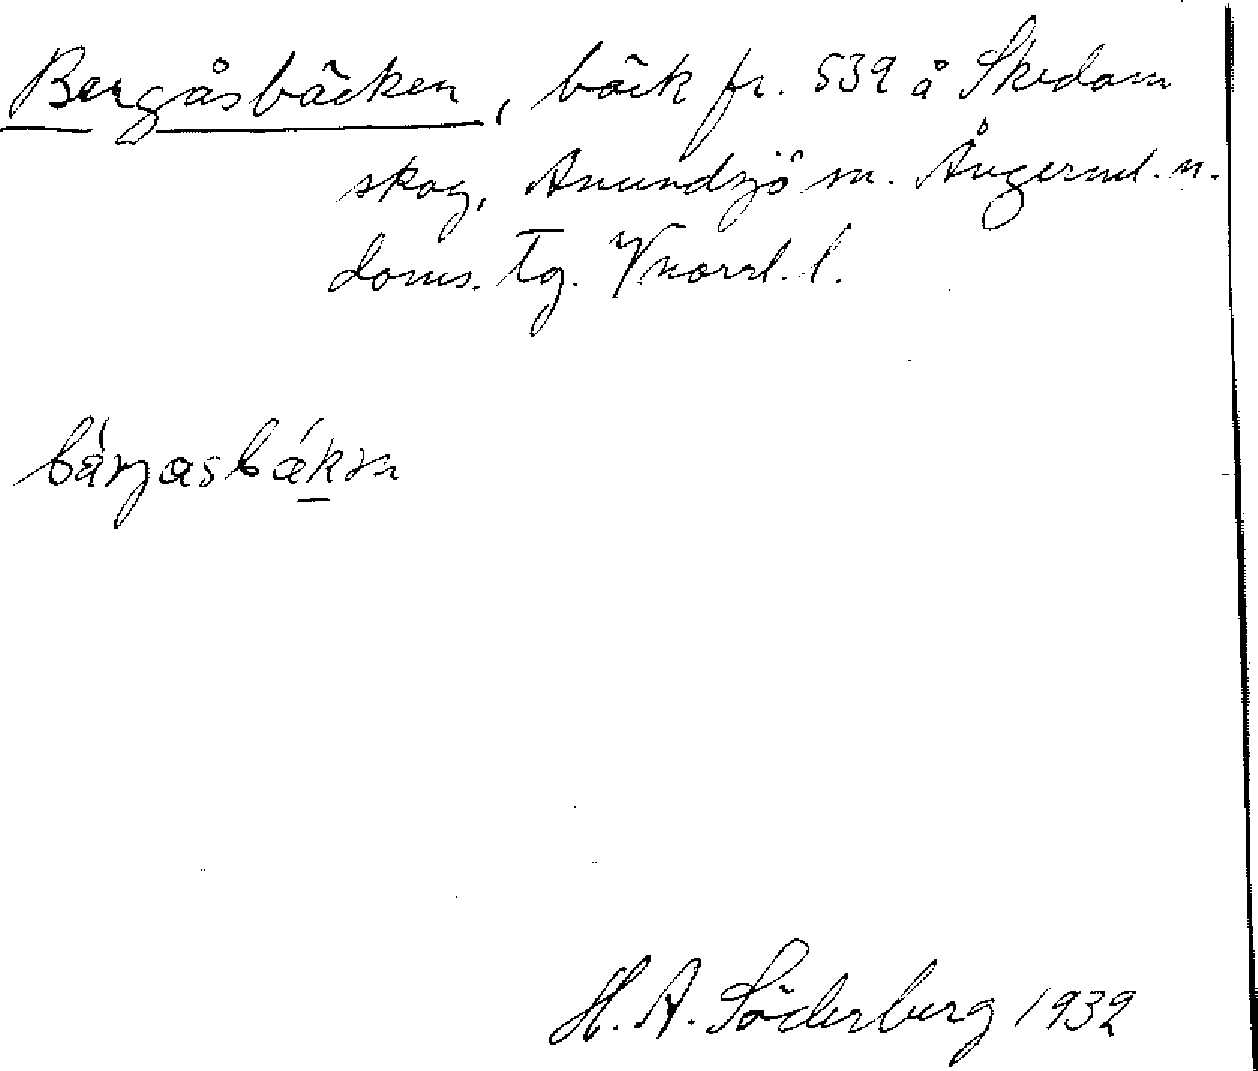 Bergåsbäcken, bäck fr. 539 å Skedom
skog, Anundsjö sn. Ångerml. n.
doms. tg. Vnorrl. l.
bárjasbákən
H. A. Söderberg 1932